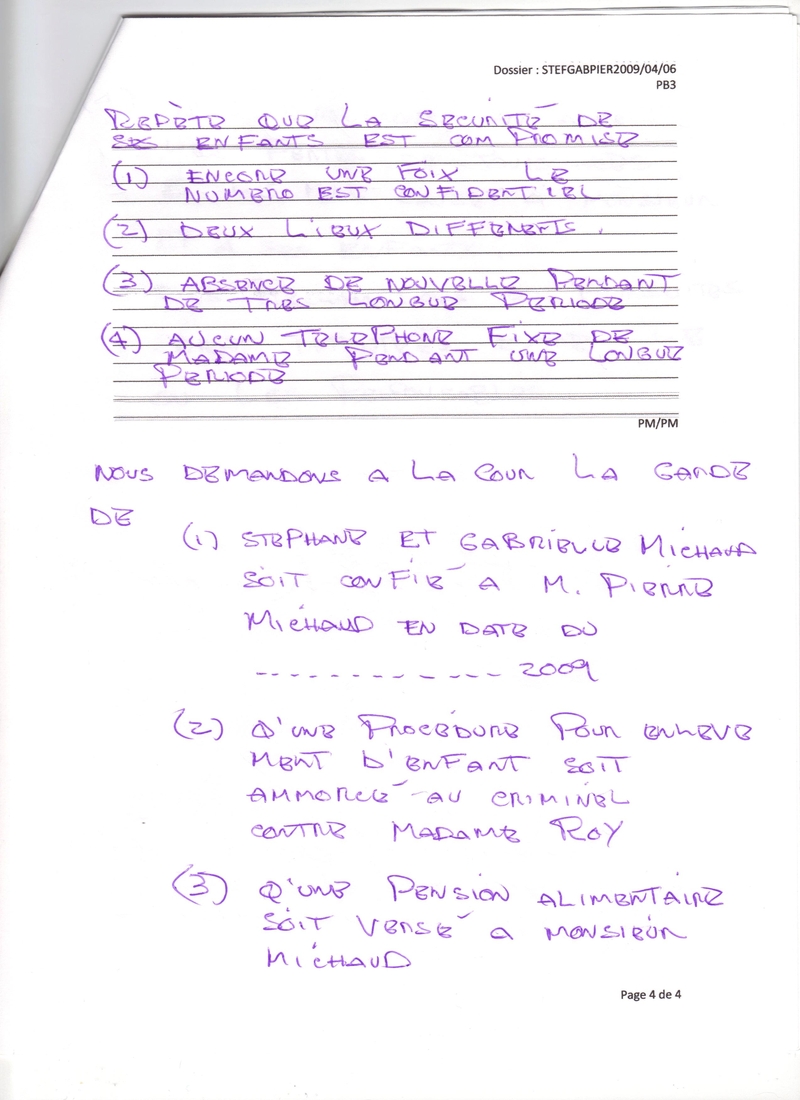 Dossier : STEFGABPIER2009/04/06
PB3
REPÈTE QUE LA SECURITÉ DE
SES ENFANTS EST COMPROMISE
(1) ENCORE UNE FOIX LE
NUMERO EST CONFIDENTIEL
(2) DEUX LIEUX DIFFERENTS.
(3) ABSENCE DE NOUVELLE PENDANT
DE TRES LONGUE PERIODE
(4) AUCUN TELEPHONE FIXE DE
MADAME PENDANT UNE LONGUE
PERIODE
PM/PM
NOUS DEMANDONS A LA COUR LA GARDE
DE
(1) STEPHANE ET GABRIELLE MICHAUD
SOIT CONFIÉ A M. PIERRE
MICHAUD EN DATE DU
------------ 2009
(2) Q'UNE PROCEDURE POUR ENLEVE
MENT D'ENFANT SOIT
AMMORCÉ AU CRIMINEL
CONTRE MADAME ROY
(3) Q'UNE PENSION ALIMENTAIRE
SOIT VERSÉ A MONSIEUR
MICHAUD
Page 4 de 4